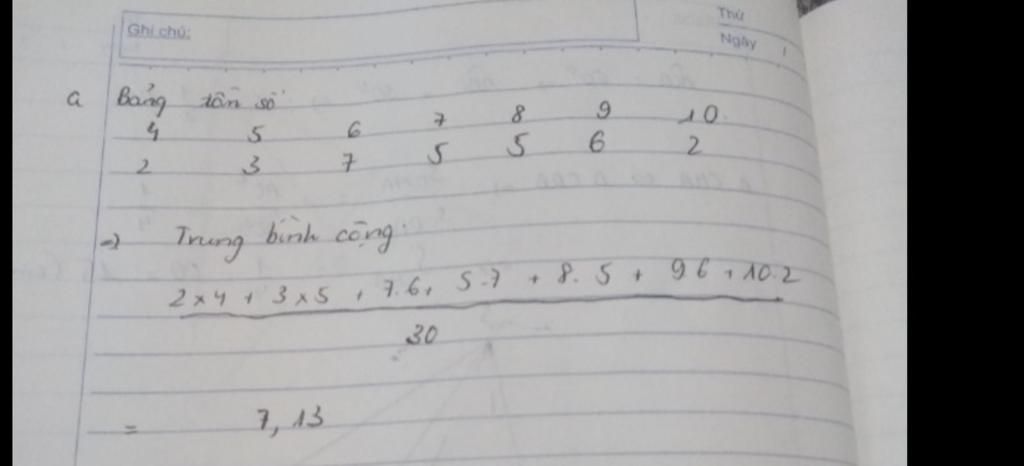 Ghi chú:
Thứ
Ngày
a Bảng tần số
4 5 6 7 8 9 10
2 3 7 5 5 6 2
=> Trung bình cộng:
2 x 4 + 3 x 5 + 7.6 + 5.7 + 8.5 + 9 6 + 10.2
30
= 7,13